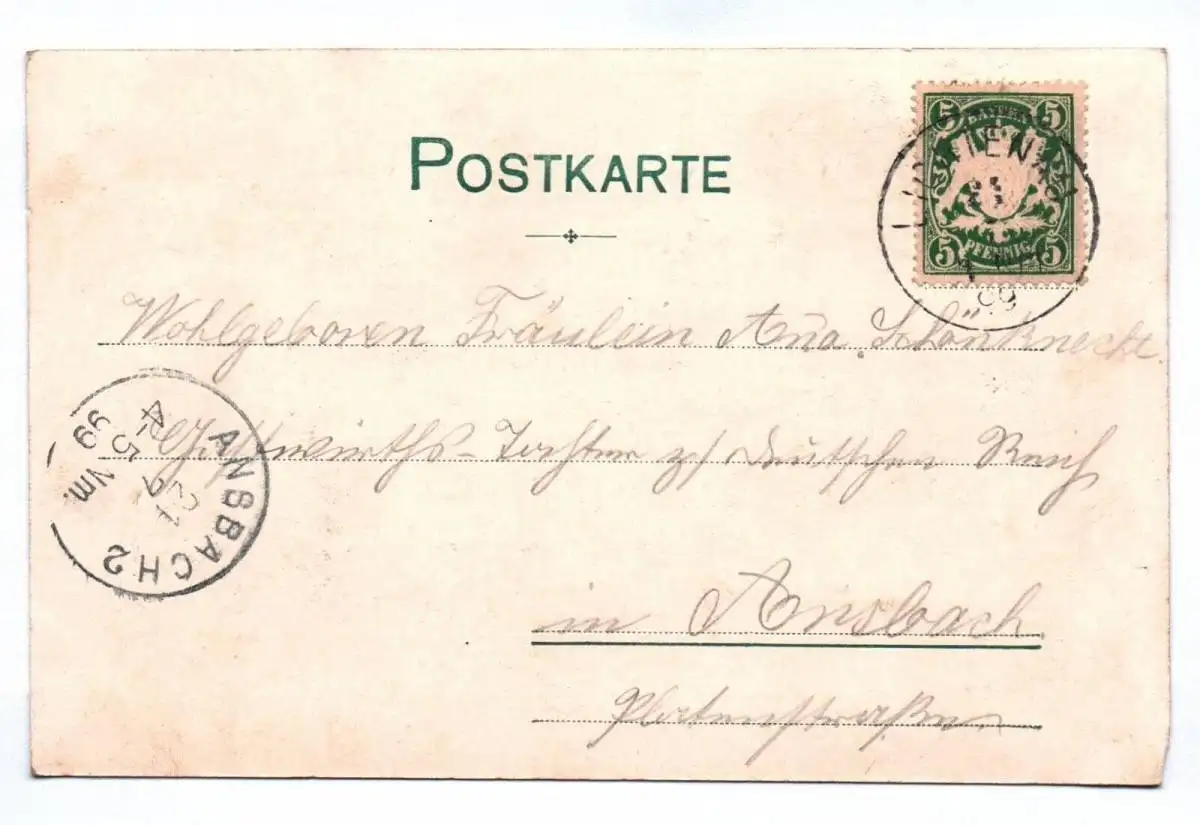 POSTKARTE
5 BAYERN 5
5 PFENNIG 5
99
Wohlgeboren Fräulein Ana Schönknecht
Gastwirths-Tochter z/ deutschen Reich
in Ansbach
Platenstraße
ANSBACH 2
21
9
4-5 Nm.
99